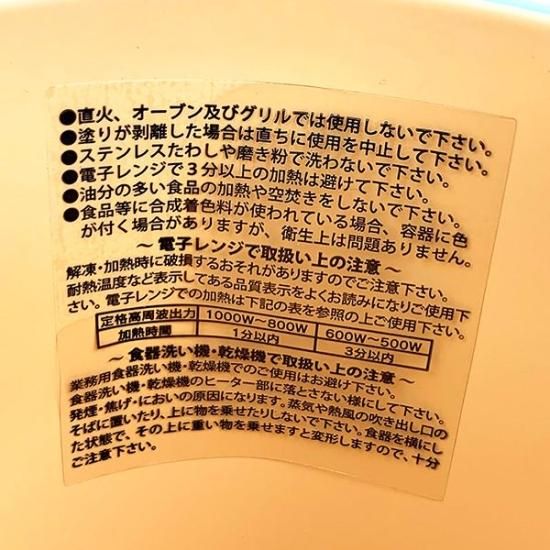 ●直火、オーブン及びグリルでは使用しないで下さい。
●塗りが剥離した場合は直ちに使用を中止して下さい。
●ステンレスたわしや磨き粉で洗わないで下さい。
●電子レンジで3分以上の加熱は避けて下さい。
●油分の多い食品の加熱や空焚きをしないで下さい。
●食品等に合成着色料が使われている場合、容器に色
が付く場合がありますが、衛生上は問題ありません。
～電子レンジで取扱い上の注意～
解凍・加熱時に破損するおそれがありますのでご注意下さい。
耐熱温度など表示してある品質表示をよくお読みになりご使用下
さい。電子レンジでの加熱は下記の表を参照の上ご使用下さい。
定格高周波出力 1000W～800W 600W～500W
加熱時間 1分以内 3分以内
～食器洗い機・乾燥機で取扱い上の注意～
業務用食器洗い機・乾燥機でのご使用はお避け下さい。
食器洗い機・乾燥機のヒーター部に落とさない様にして下さい。
発煙・焦げ・においの原因になります。蒸気や熱風の吹き出し口の
そばに置いたり、上に物を乗せたりしないで下さい。食器を横にし
た状態で、その上に重い物を乗せますと変形しますので、十分
ご注意下さい。